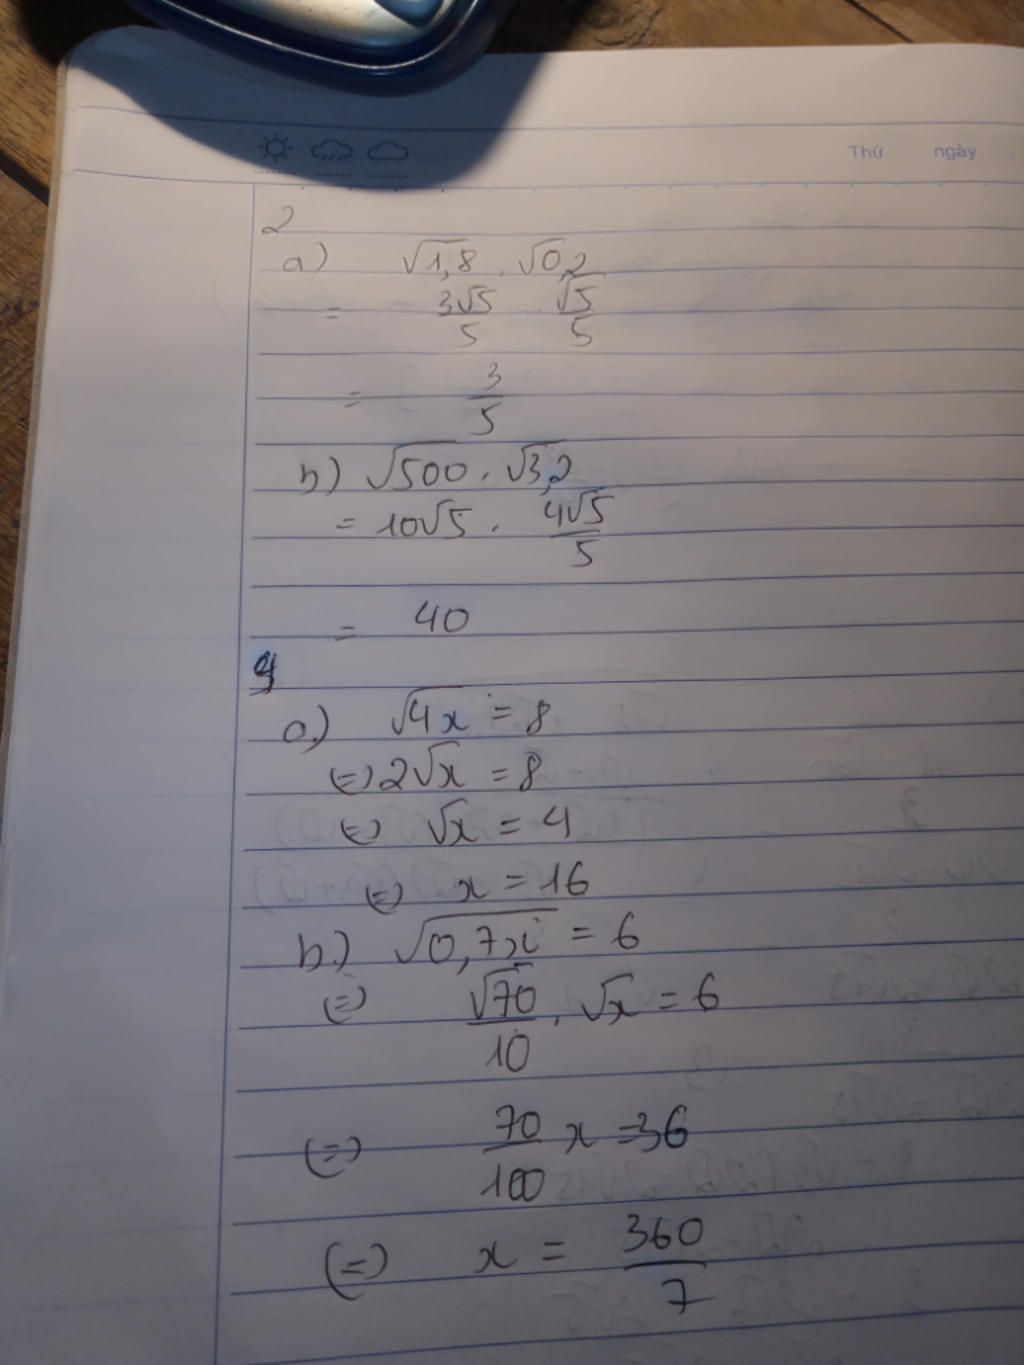 Thứ ngày
2
a) √1,8 . √0,2
= 3√5/5 . √5/5
= 3/5
b) √500 . √3,2
= 10√5 . 4√5/5
= 40
4
a.) √4x = 8
(=) 2√x = 8
(=) √x = 4
(=) x = 16
b.) √0,7x = 6
(=) √70/10 . √x = 6
(=) 70/100 x = 36
(=) x = 360/7